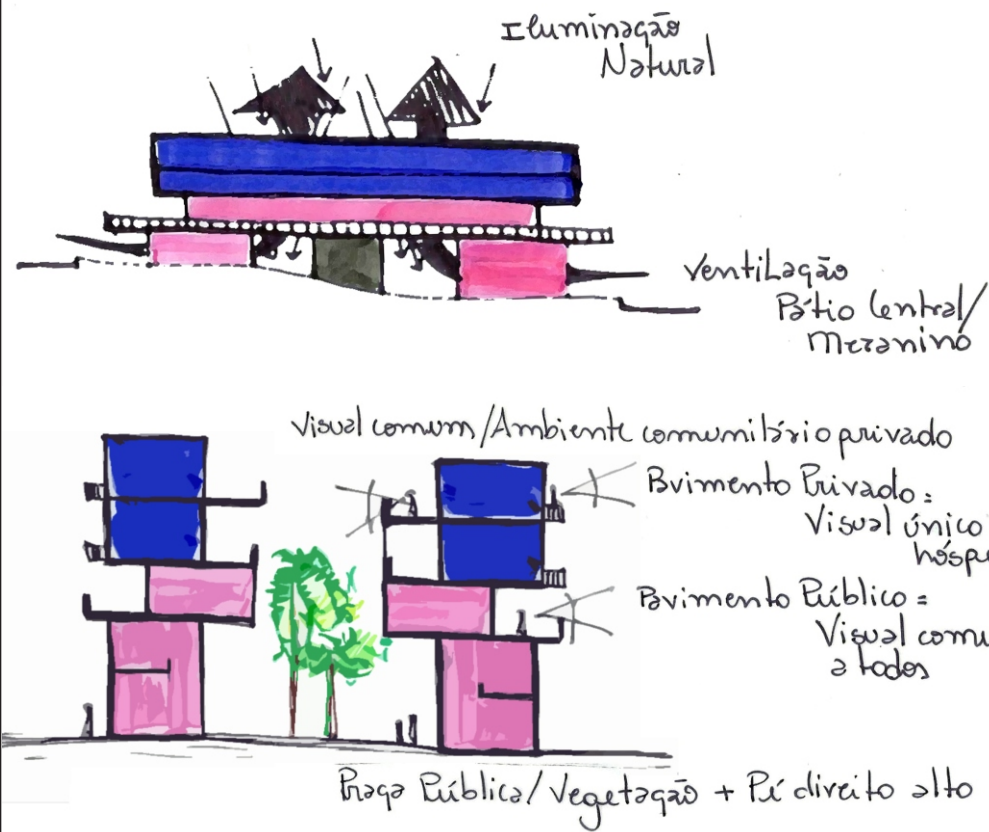 Iluminação
Natural
Ventilação
Pátio Central/
Mezanino
Visual comum/Ambiente comunitário privado
Pavimento Privado =
Visual único
Pavimento Público =
Visual
a todos
Praça Pública/Vegetação + Pé direito alto